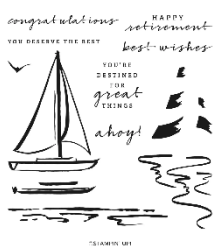 congratulations
HAPPY
retirement
YOU DESERVE THE BEST
best wishes
YOU'RE
DESTINED
FOR
great
THINGS
ahoy!
STAMPIN' UP!